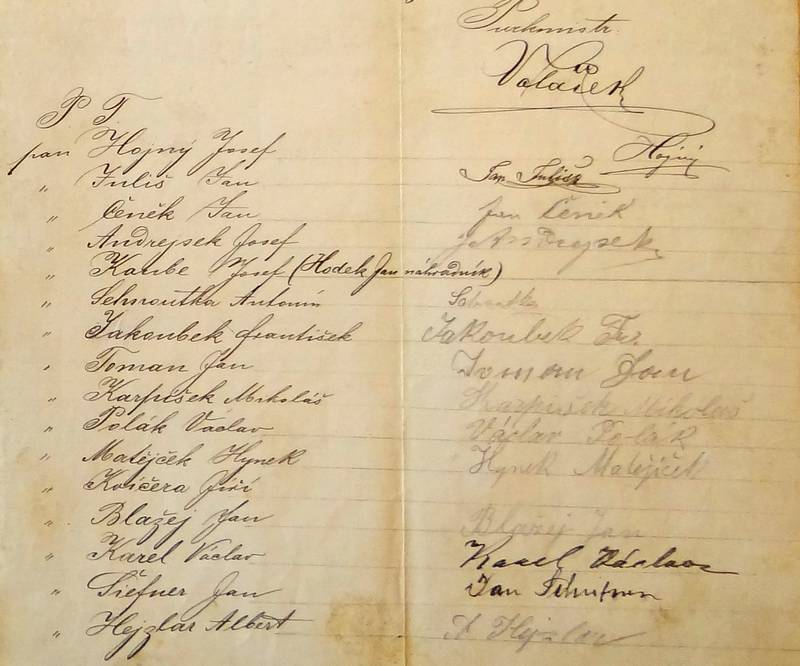 Purkmistr
Volášek
P T.
pan Hojný Josef Hojný
„ Juliš Jan Jan Juliš
„ Čeněk Jan Jan Čeněk
„ Andrejsek Josef J. Andrejsek
„ Kaube Josef (Hodek Jan náhradník)
„ Sehnoutka Antonín
„ Jakoubek František Jakoubek Fr.
„ Toman Jan Toman Jan
„ Karpíšek Mikoláš Karpíšek Mikoláš
„ Polák Václav Václav Polák
„ Matějček Hynek Hynek Matějíček
„ Kvíčera Jiří
„ Blažej Jan Blažej Jan
„ Karel Václav Karel Václav
„ Šiefner Jan Jan
„ Hejzlar Albert A Hejzlar